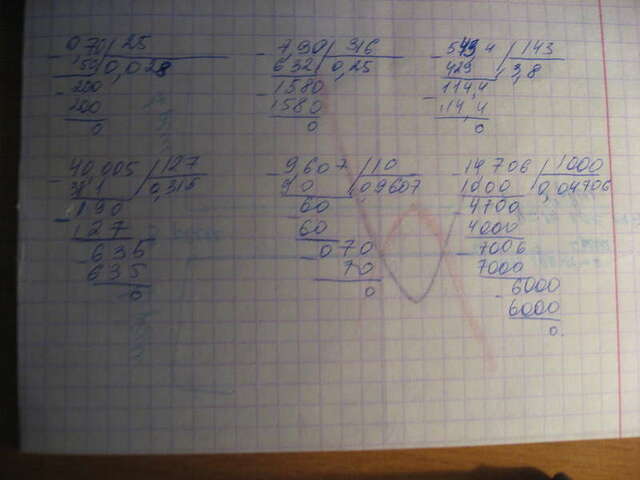 0,70 25
150 0,028
- 200
200
0
- 7,90 316
632 0,25
- 1580
1580
0
- 543,4 143
429 3,8
- 114,4
114,4
0
- 40,005 127
381 0,315
- 190
127
- 635
635
0
- 9,607 10
90 0,9607
- 60
60
- 070
70
0
- 14,706 1000
1000 0,04706
- 4700
4000
- 7006
7000
- 6000
6000
0